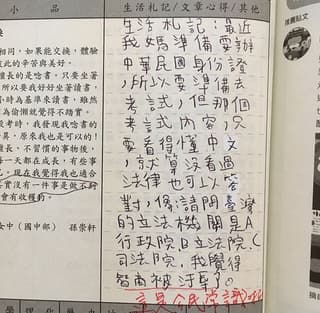 小品
生活札記/文章心得/其他
相同,如果能交換,體驗
彼此的辛苦與美好。
擅長的是唸書,只要坐著
所以要我好好坐著讀書,
小時為基準來讀書,雖然
為偷懶就覺得不踏實。
原來我也是可以的!
長,不習慣的事物後,
每一天都在成長,有些事
現在我覺得我也適合
實沒有一件事是做不到
會有收穫的。
女中(國中部) 孫崇軒
生活札記:最近
我媽準備要辦
中華民國身份證
,所以要準備去
考試,但那個
考試內容,只
要看得懂中文
,就算沒看過
法律也可以答
對,像:請問臺灣
的立法機關是A
行政院B立法院C
司法院,我覺得
智商被污辱了。
推薦貼文